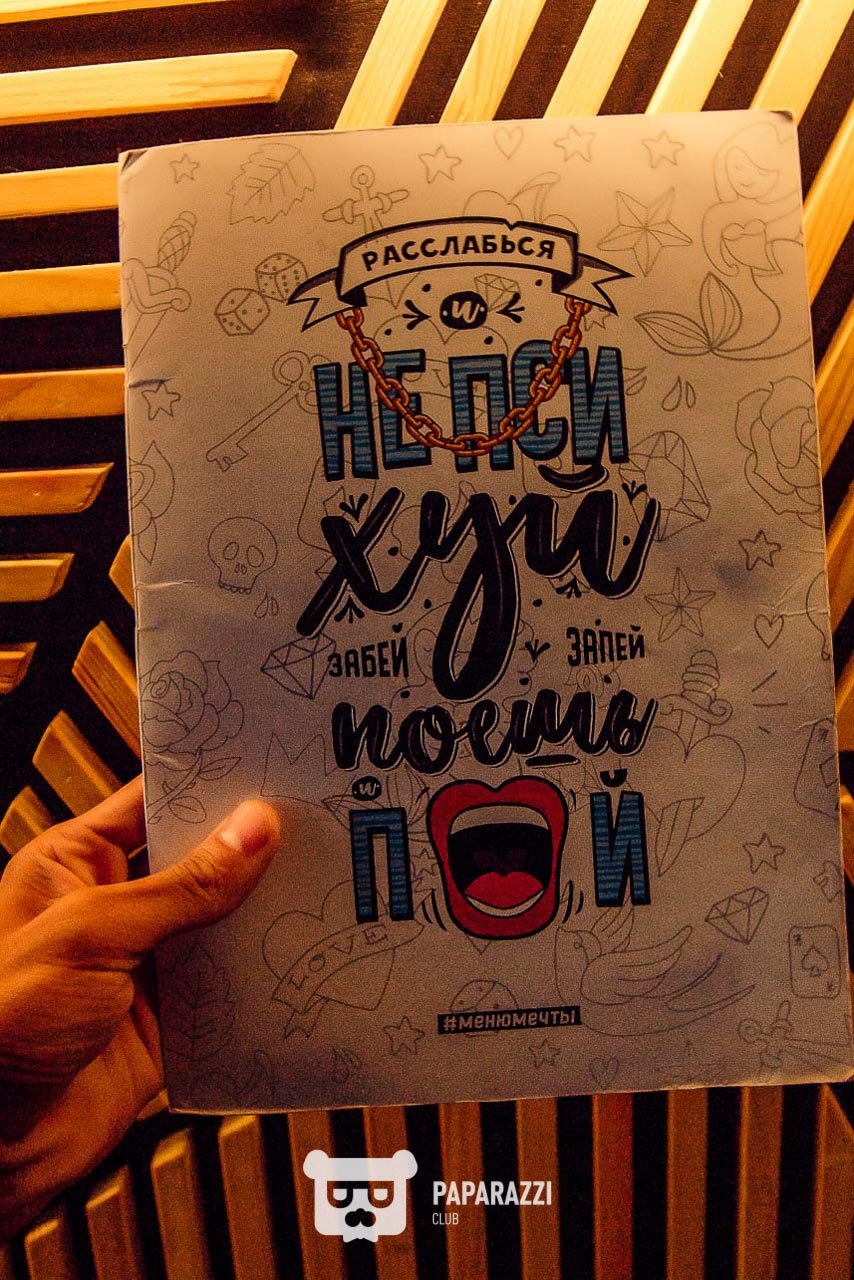 РАССЛАБЬСЯ
и
НЕ ПСИ
хуй
ЗАБЕЙ ЗАПЕЙ
поешь
и
ПОЙ
LOVE
#менюмечты
PAPARAZZI
CLUB